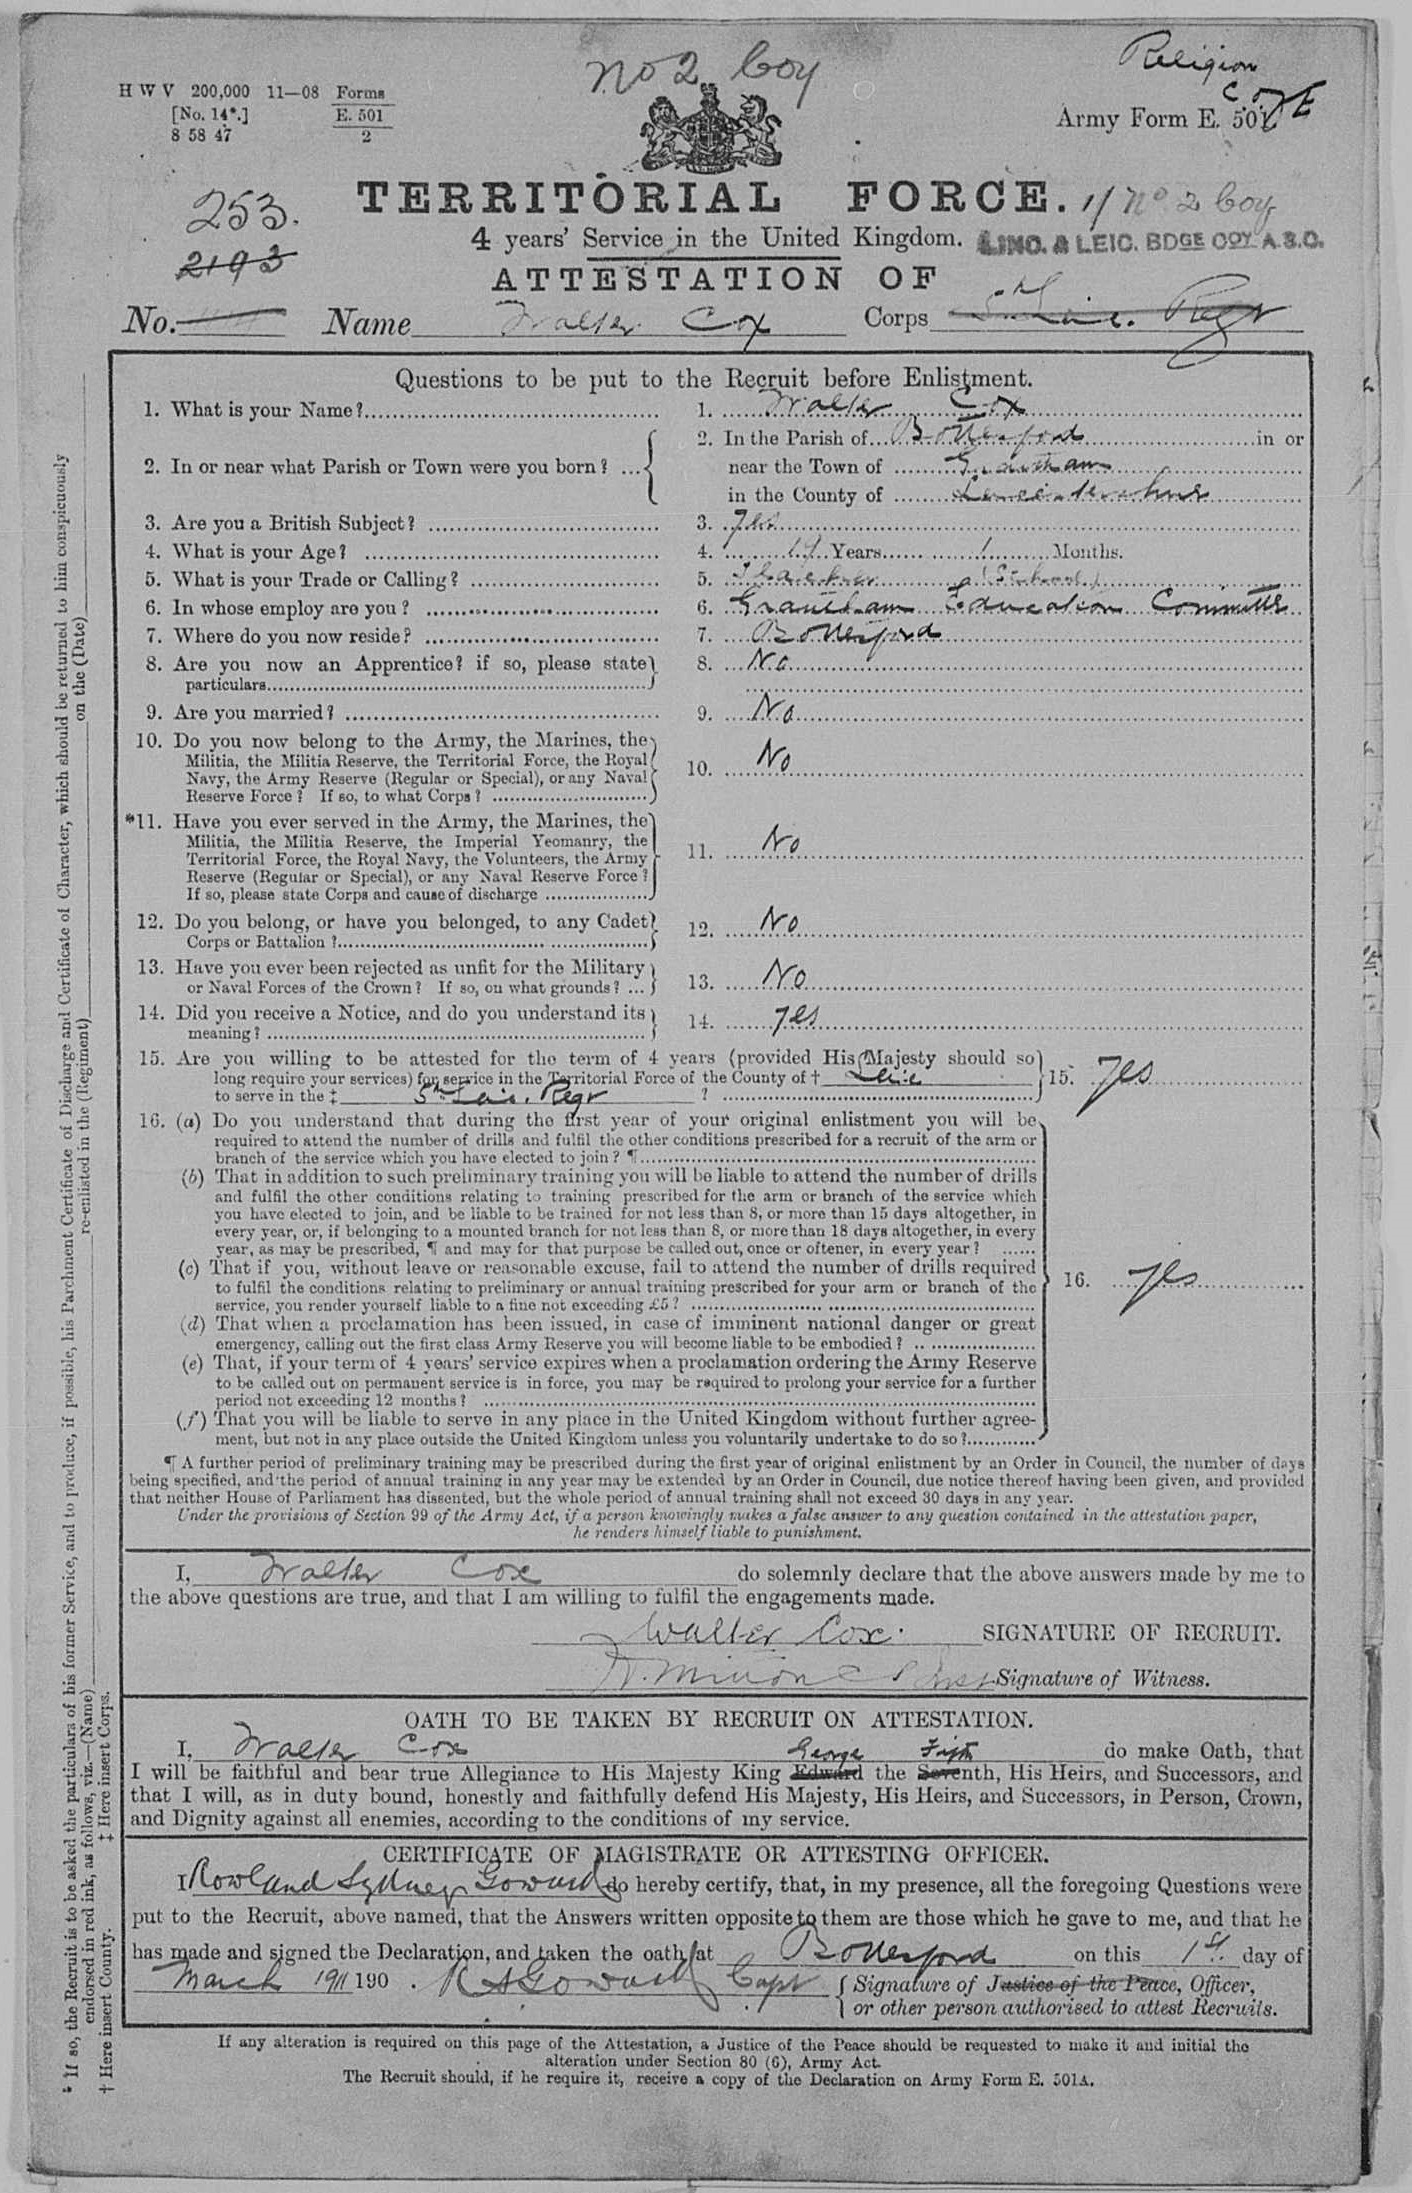 No 2 Coy
Religion
C of E
H W V 200,000 11—08 Forms
[No. 14*.] E. 501
8 58 47 2
Army Form E. 501.
253.
TERRITORIAL FORCE. 1/ No 2 Coy
2193
4 years' Service in the United Kingdom. LINC. & LEIC. BDGE COY A.S.C.
ATTESTATION OF
No. Name Walter Cox Corps 5th Leic. Regt
Questions to be put to the Recruit before Enlistment.
1. What is your Name? 1. Walter Cox
2. In or near what Parish or Town were you born? ... 2. In the Parish of Bottesford in or
near the Town of Grantham
in the County of Leicestershire
3. Are you a British Subject? 3. Yes
4. What is your Age? 4. Years 1 Months.
5. What is your Trade or Calling? 5. Teacher (School)
6. In whose employ are you? 6. Grantham Education Committee
7. Where do you now reside? 7. Bottesford
8. Are you now an Apprentice? if so, please state 8. No
particulars
9. Are you married? 9. No
10. Do you now belong to the Army, the Marines, the
Militia, the Militia Reserve, the Territorial Force, the Royal
Navy, the Army Reserve (Regular or Special), or any Naval 10. No
Reserve Force? If so, to what Corps?
*11. Have you ever served in the Army, the Marines, the
Militia, the Militia Reserve, the Imperial Yeomanry, the
Territorial Force, the Royal Navy, the Volunteers, the Army 11. No
Reserve (Regular or Special), or any Naval Reserve Force?
If so, please state Corps and cause of discharge
12. Do you belong, or have you belonged, to any Cadet 12. No
Corps or Battalion?
13. Have you ever been rejected as unfit for the Military 13. No
or Naval Forces of the Crown? If so, on what grounds? ...
14. Did you receive a Notice, and do you understand its 14. Yes
meaning?
15. Are you willing to be attested for the term of 4 years (provided His Majesty should so
long require your services) for service in the Territorial Force of the County of † Leic 15. Yes
to serve in the ‡ 5th Leic. Regt ?
16. (a) Do you understand that during the first year of your original enlistment you will be
required to attend the number of drills and fulfil the other conditions prescribed for a recruit of the arm or
branch of the service which you have elected to join? ¶
(b) That in addition to such preliminary training you will be liable to attend the number of drills
and fulfil the other conditions relating to training prescribed for the arm or branch of the service which
you have elected to join, and be liable to be trained for not less than 8, or more than 15 days altogether, in
every year, or, if belonging to a mounted branch for not less than 8, or more than 18 days altogether, in every
year, as may be prescribed, ¶ and may for that purpose be called out, once or oftener, in every year?
(c) That if you, without leave or reasonable excuse, fail to attend the number of drills required
to fulfil the conditions relating to preliminary or annual training prescribed for your arm or branch of the 16. Yes
service, you render yourself liable to a fine not exceeding £5?
(d) That when a proclamation has been issued, in case of imminent national danger or great
emergency, calling out the first class Army Reserve you will become liable to be embodied?
(e) That, if your term of 4 years' service expires when a proclamation ordering the Army Reserve
to be called out on permanent service is in force, you may be required to prolong your service for a further
period not exceeding 12 months?
(f) That you will be liable to serve in any place in the United Kingdom without further agree-
ment, but not in any place outside the United Kingdom unless you voluntarily undertake to do so?
¶ A further period of preliminary training may be prescribed during the first year of original enlistment by an Order in Council, the number of days
being specified, and the period of annual training in any year may be extended by an Order in Council, due notice thereof having been given, and provided
that neither House of Parliament has dissented, but the whole period of annual training shall not exceed 30 days in any year.
Under the provisions of Section 99 of the Army Act, if a person knowingly makes a false answer to any question contained in the attestation paper,
he renders himself liable to punishment.
I, Walter Cox do solemnly declare that the above answers made by me to
the above questions are true, and that I am willing to fulfil the engagements made.
Walter Cox. SIGNATURE OF RECRUIT.
Signature of Witness.
OATH TO BE TAKEN BY RECRUIT ON ATTESTATION.
I, Walter Cox George Fifth do make Oath, that
I will be faithful and bear true Allegiance to His Majesty King Edward the Seventh, His Heirs, and Successors, and
that I will, as in duty bound, honestly and faithfully defend His Majesty, His Heirs, and Successors, in Person, Crown,
and Dignity against all enemies, according to the conditions of my service.
CERTIFICATE OF MAGISTRATE OR ATTESTING OFFICER.
I Rowland Sydney Goward do hereby certify, that, in my presence, all the foregoing Questions were
put to the Recruit, above named, that the Answers written opposite to them are those which he gave to me, and that he
has made and signed the Declaration, and taken the oath at Bottesford on this 1st. day of
March 1911 190 . R S Goward Capt Signature of Justice of the Peace, Officer,
or other person authorised to attest Recruits.
If any alteration is required on this page of the Attestation, a Justice of the Peace should be requested to make it and initial the
alteration under Section 80 (6), Army Act.
The Recruit should, if he require it, receive a copy of the Declaration on Army Form E. 501A.
* If so, the Recruit is to be asked the particulars of his former Service, and to produce, if possible, his Parchment Certificate of Discharge and Certificate of Character, which should be returned to him conspicuously
endorsed in red ink, as follows, viz.—(Name) re-enlisted in the (Regiment) on the (Date)
† Here insert County. ‡ Here insert Corps.